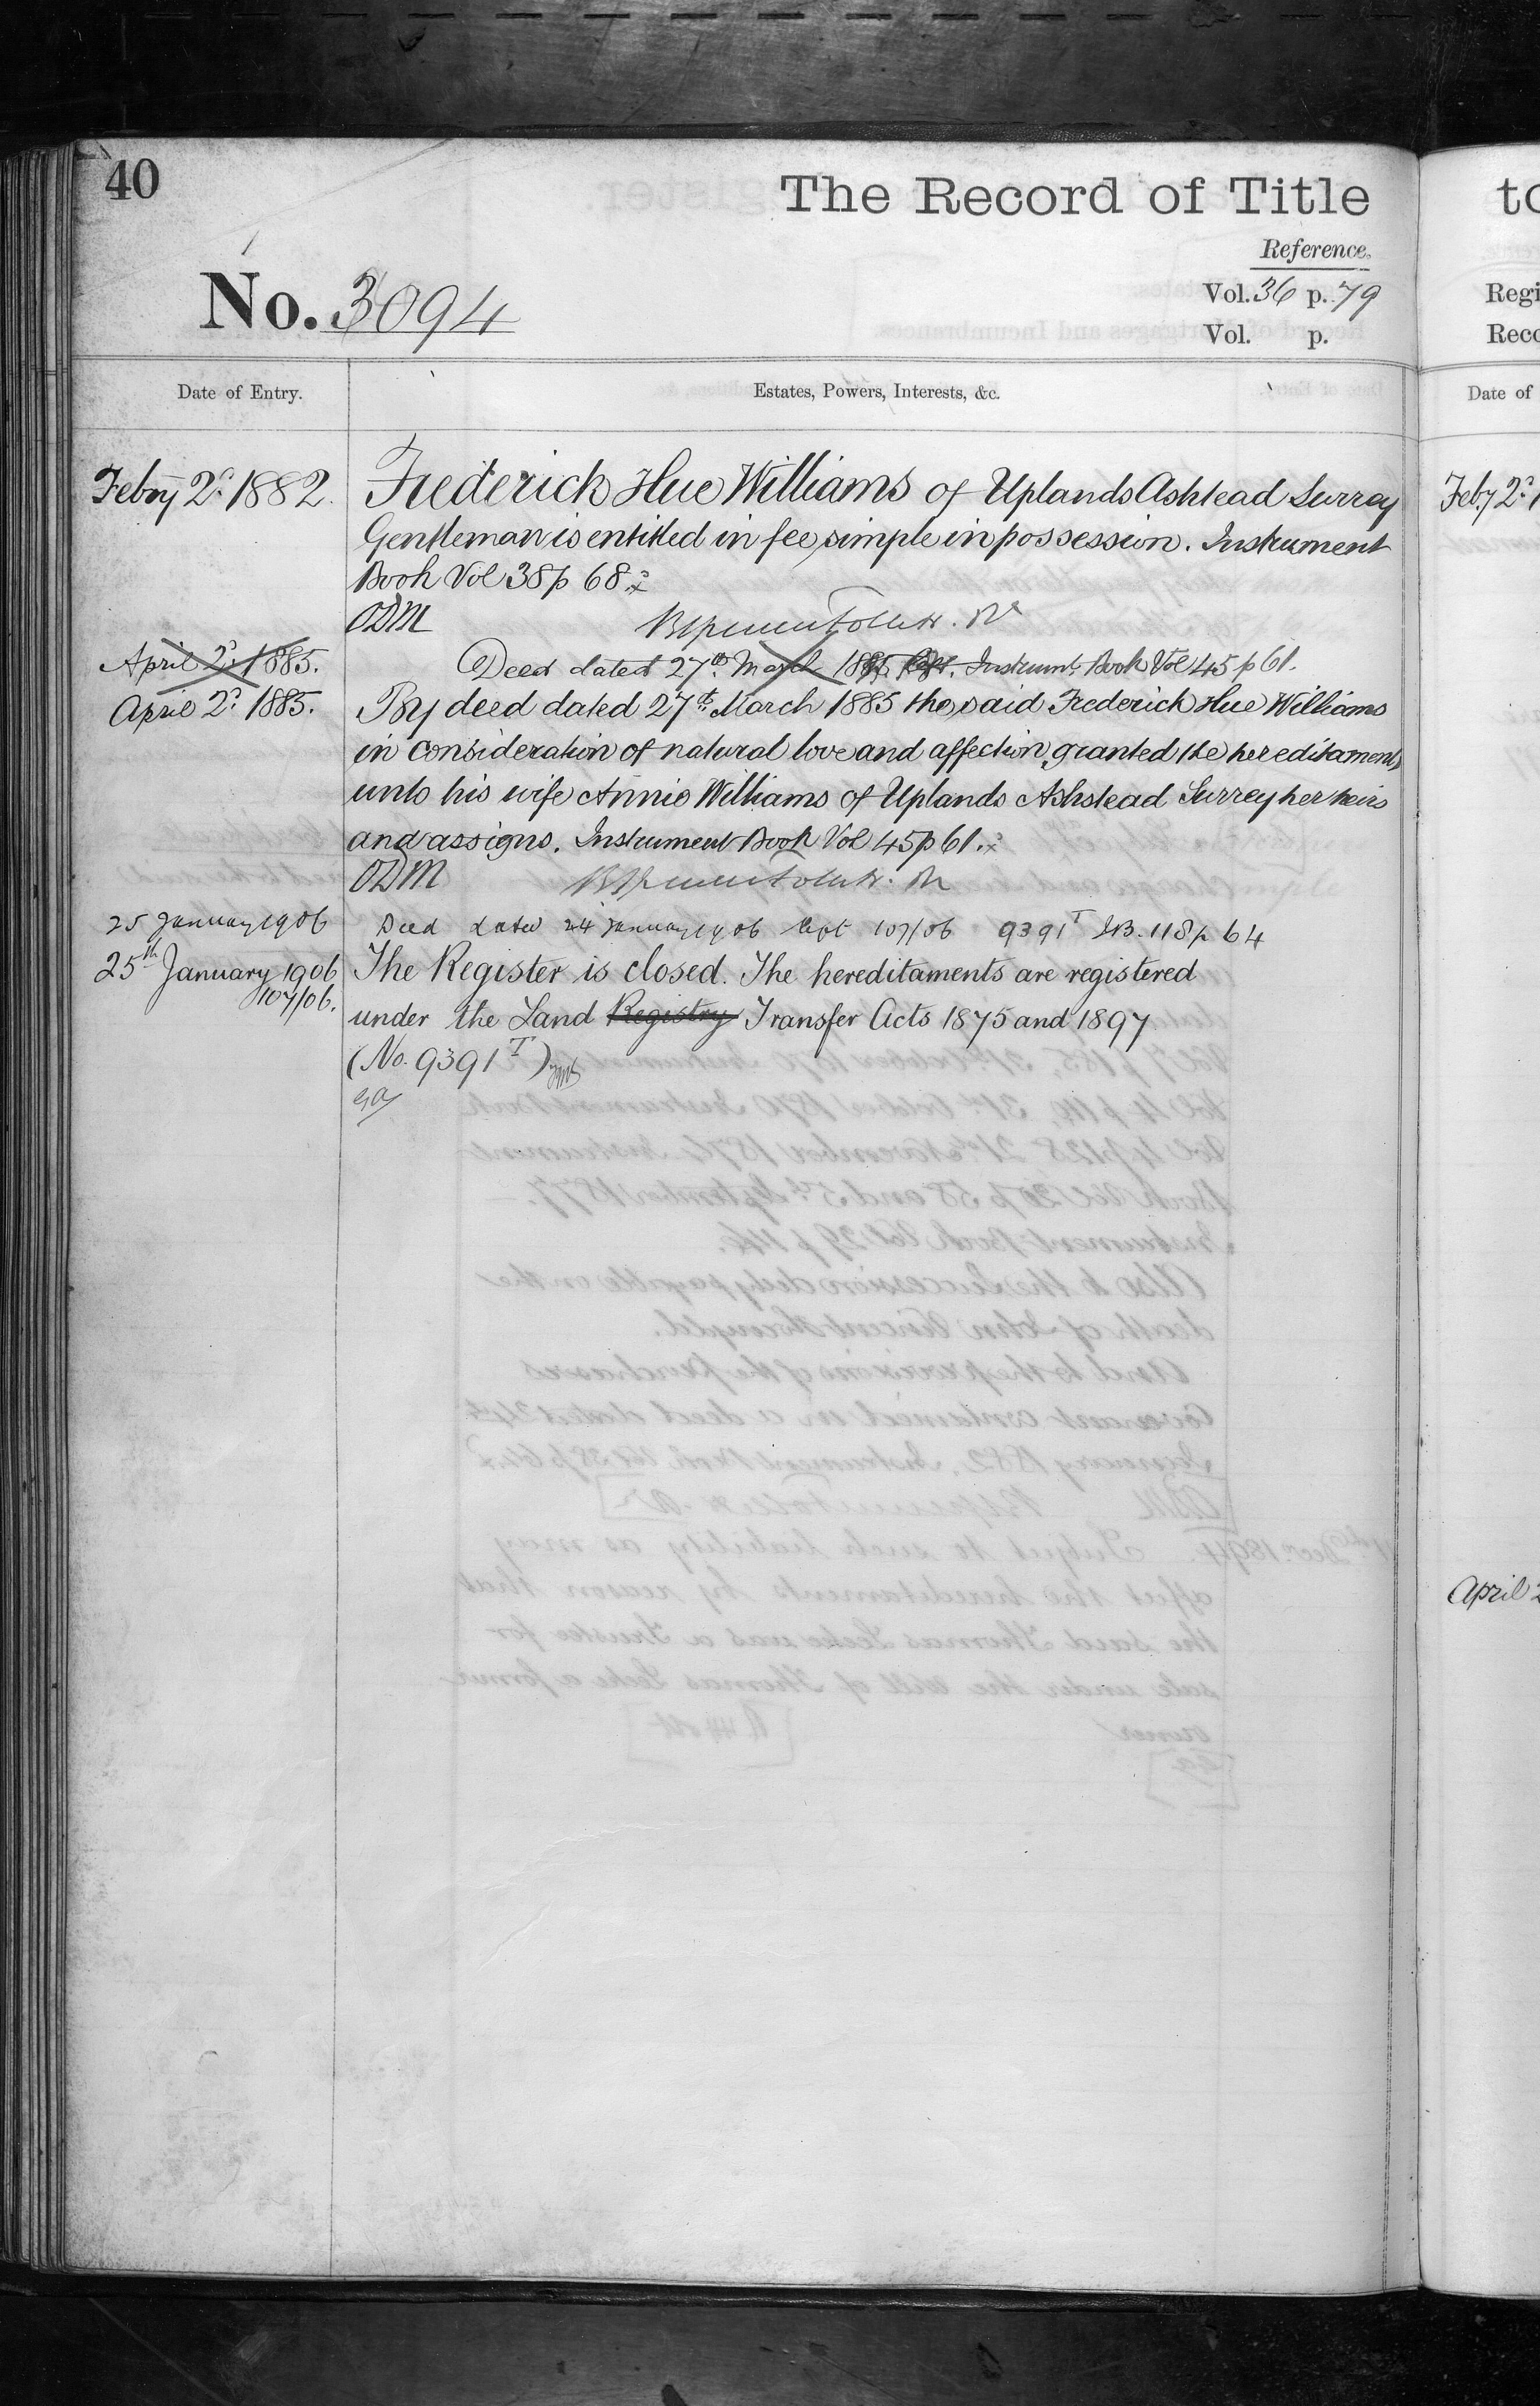 40
The Record of Title
Reference.
No. 3094
Vol. 36 p. 79
Vol. p.
Date of Entry.
Estates, Powers, Interests, &c.
Febry 2d 1882. Frederick Hue Williams of Uplands Ashtead Surrey
Gentleman is entitled in fee simple in possession. Instrument
Book Vol 38 p 68.
ODM
April 2d 1885. Deed dated 27th March 1885 Instrumt Book Vol 45 p 61.
April 2d 1885. By deed dated 27th March 1885 the said Frederick Hue Williams
in consideration of natural love and affection, granted the hereditaments
unto his wife Annie Williams of Uplands Ashstead Surrey her heirs
and assigns. Instrument Book Vol 45 p 61.
ODM
25 January 1906 Deed dated 24 January 1906 107/06 9391T I.B. 118 p 64
25th January 1906 The Register is closed. The hereditaments are registered
107/06.
under the Land Registry Transfer Acts 1875 and 1897
(No. 9391T)
to
Regi
Reco
Date of
Feby 2d 1
April 2